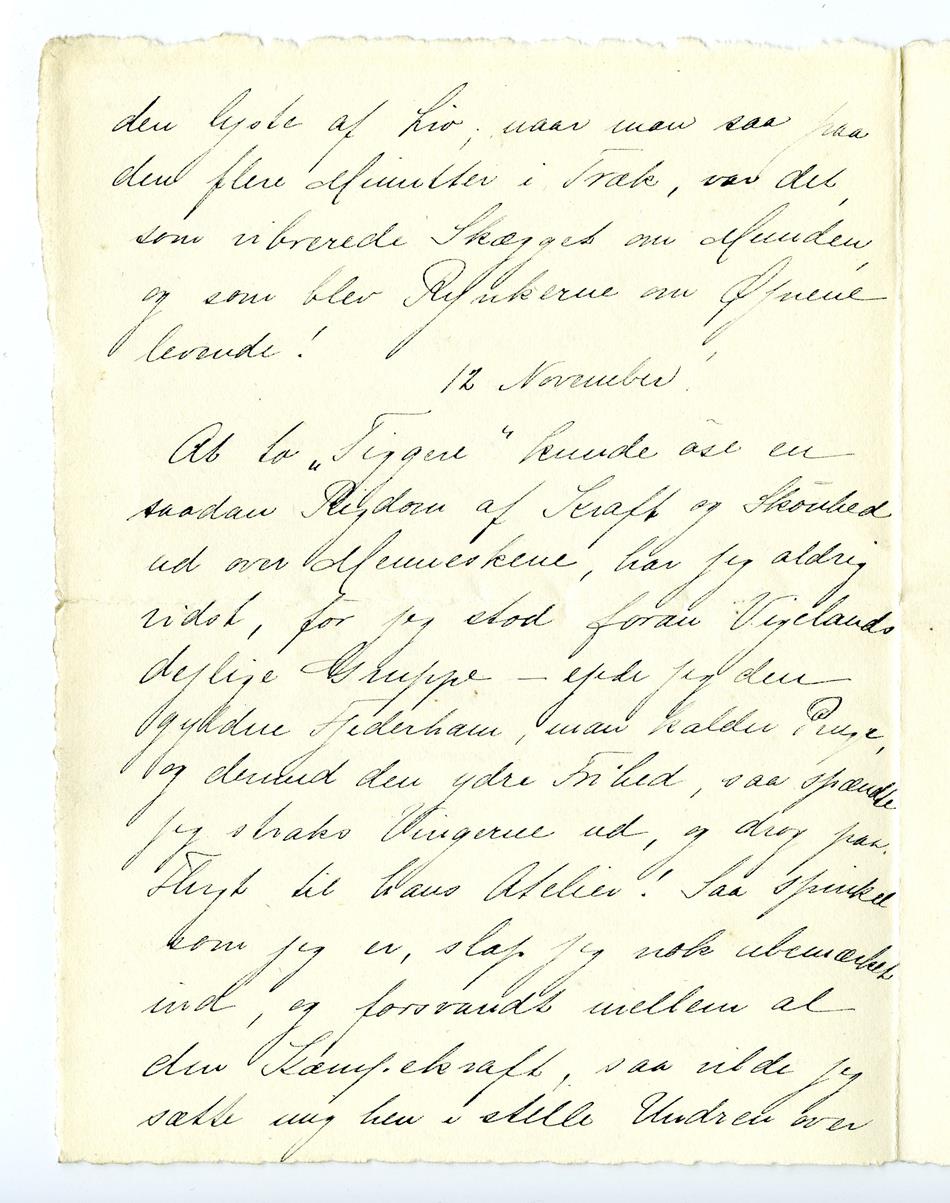 den lyste af Liv; naar man saa paa
den flere Minutter i Træk, var det,
som vibrerede Skægget om Munden,
og som blev Rynkerne om Øjnene
levende!
12 November.
At to „Tiggere“ kunde öse en
saadan Rigdom af Kraft og Skönhed
ud over Menneskene, har jeg aldrig
vidst, för jeg stod foran Vigelands
dejlige Gruppe – ejede jeg den
gyldne Fjederham, man kalder Penge,
og dermed den ydre Frihed, saa spændte
jeg straks Vingerne ud, og drog paa
Flugt til hans Atelier! Saa spinkel
som jeg er, slap jeg nok ubemærket
ind, og forsvandt mellem al
den Kæmpekraft, saa vilde jeg
sætte mig hen i stille Undren over